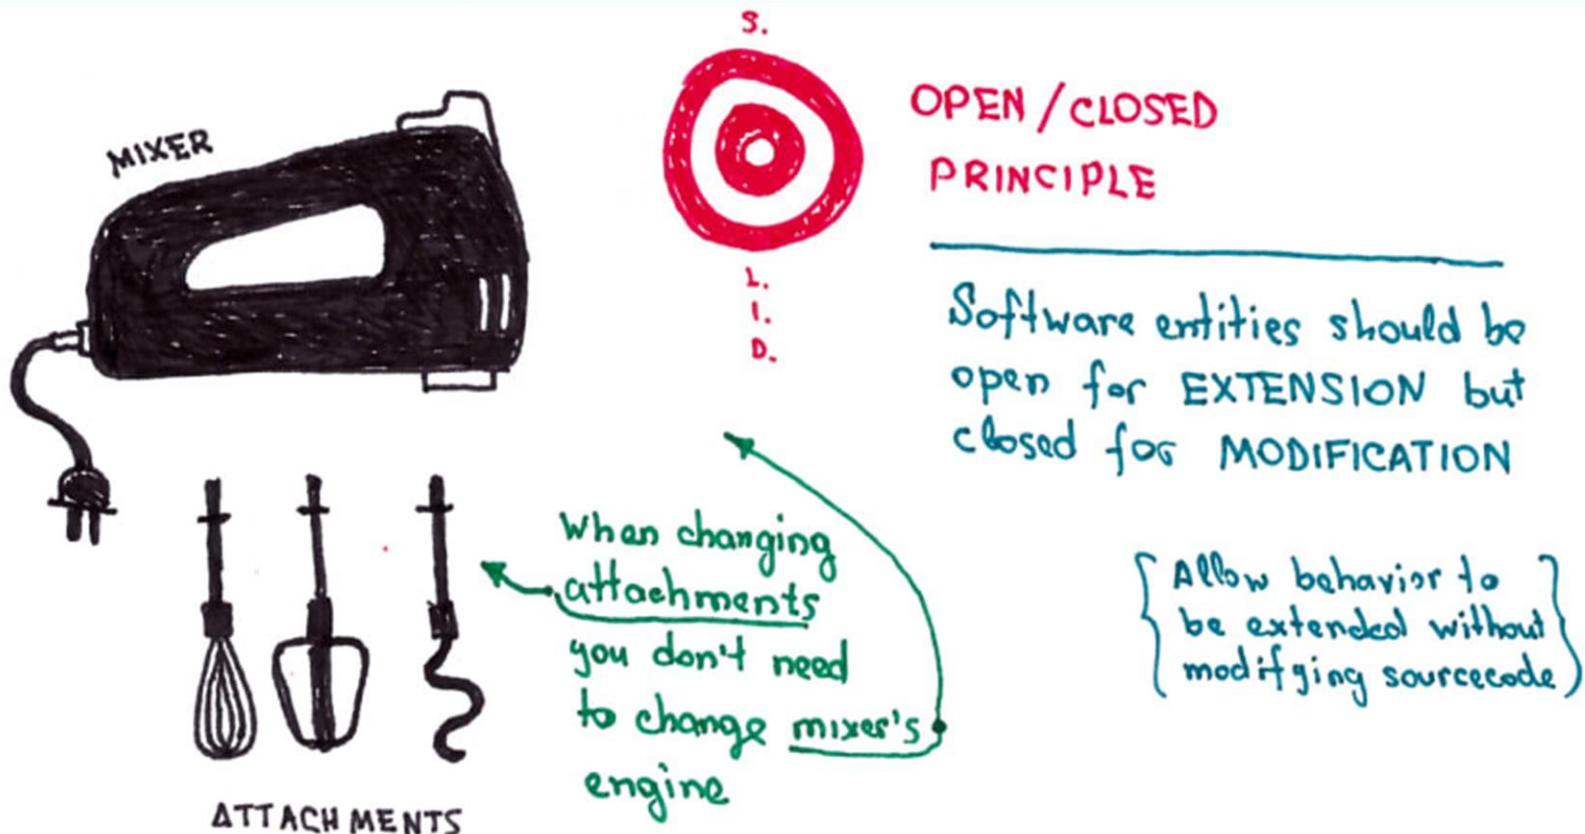 MIXER
S.
L.
I.
D.
OPEN / CLOSED
PRINCIPLE
Software entities should be
open for EXTENSION but
closed for MODIFICATION
When changing
attachments
you don't need
to change mixer's
engine
{ Allow behavior to
be extended without
modifying sourcecode }
ATTACHMENTS